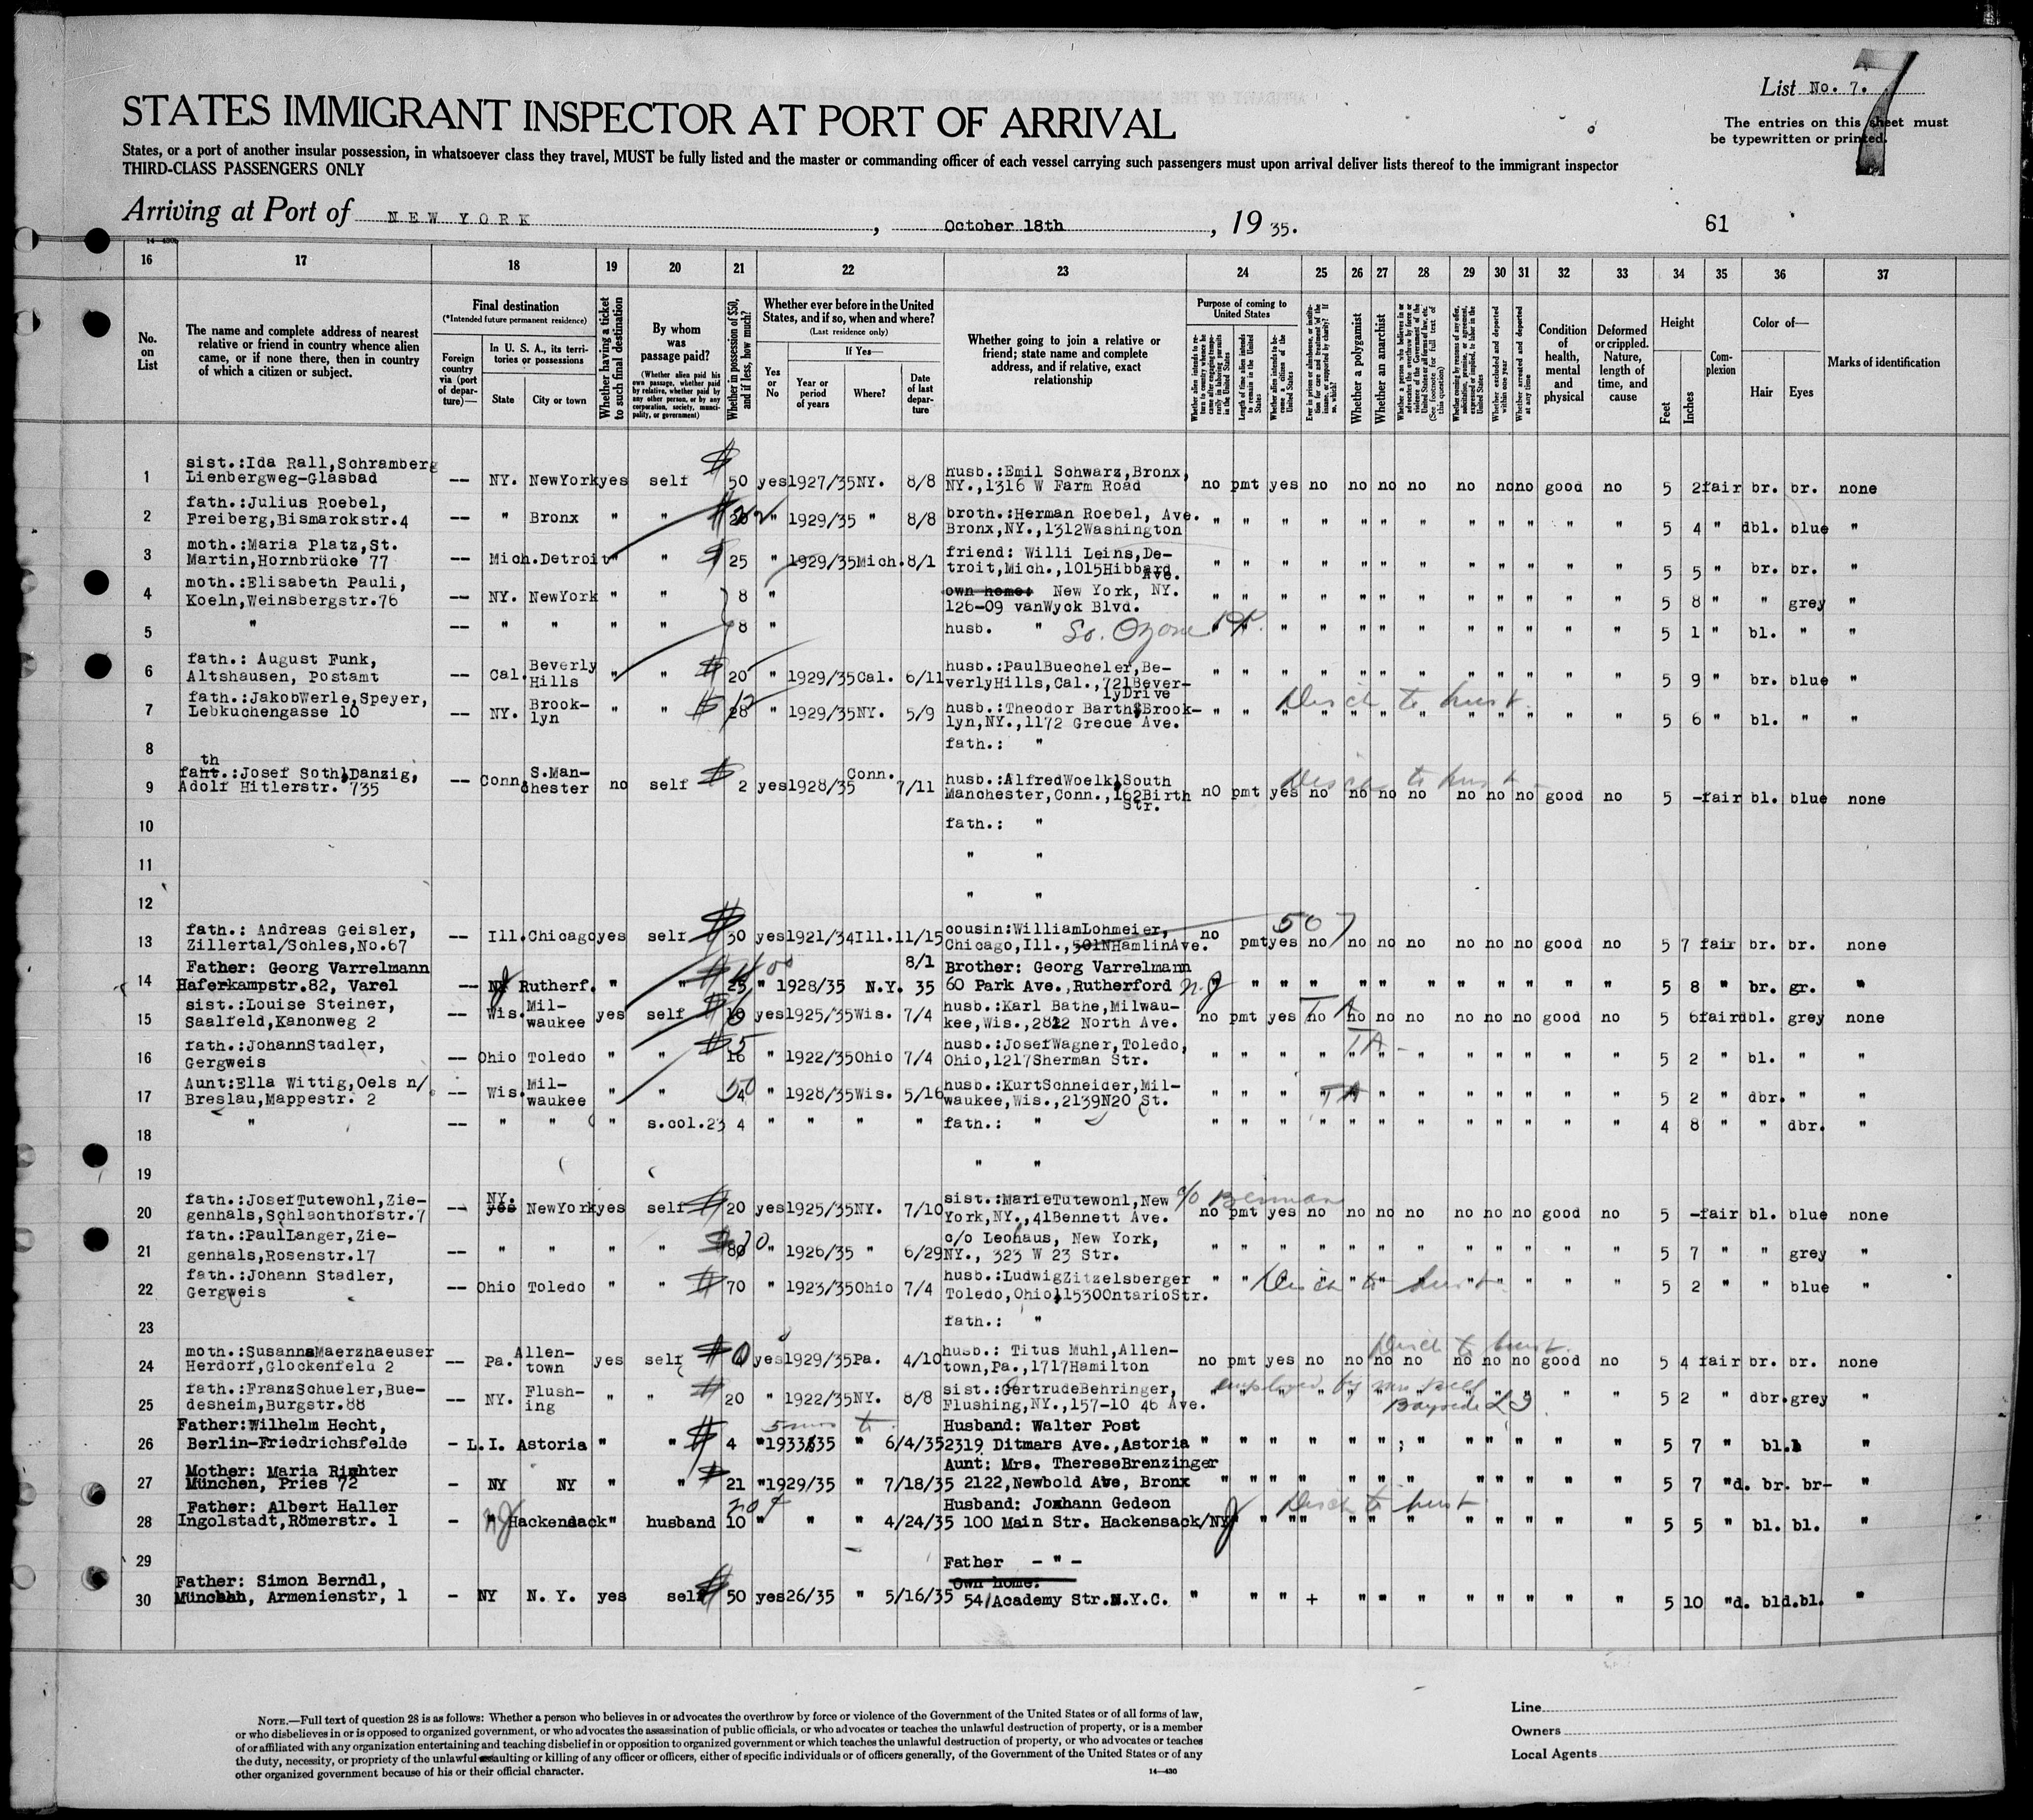 List No. 7.
7
STATES IMMIGRANT INSPECTOR AT PORT OF ARRIVAL
The entries on this sheet must
be typewritten or printed.
States, or a port of another insular possession, in whatsoever class they travel, MUST be fully listed and the master or commanding officer of each vessel carrying such passengers must upon arrival deliver lists thereof to the immigrant inspector
THIRD-CLASS PASSENGERS ONLY
Arriving at Port of NEW YORK, October 18th, 19 35.
61
14—430b
16 17 18 19 20 21 22 23 24 25 26 27 28 29 30 31 32 33 34 35 36 37
No. on List
The name and complete address of nearest relative or friend in country whence alien came, or if none there, then in country of which a citizen or subject.
Final destination
(*Intended future permanent residence)
Foreign country via (port of departure)—
In U. S. A., its territories or possessions
State
City or town
Whether having a ticket to such final destination
By whom was passage paid?
(Whether alien paid his own passage, whether paid by relative, whether paid by any other person, or by any corporation, society, municipality, or government)
Whether in possession of $50, and if less, how much?
Whether ever before in the United States, and if so, when and where?
(Last residence only)
Yes or No
If Yes—
Year or period of years
Where?
Date of last departure
Whether going to join a relative or friend; state name and complete address, and if relative, exact relationship
Purpose of coming to United States
Length of time alien intends to remain in the United States
Whether alien intends to become a citizen of the United States
Whether a polygamist
Whether an anarchist
Whether excluded and deported within one year
Whether arrested and deported at any time
Condition of health, mental and physical
Deformed or crippled. Nature, length of time, and cause
Height
Feet
Inches
Complexion
Color of—
Hair
Eyes
Marks of identification
1 sist.:Ida Rall,Schramberg
Lienbergweg-Glasbad -- NY. NewYork yes self $ 50 yes 1927/35 NY. 8/8 husb.:Emil Schwarz,Bronx,
NY.,1316 W Farm Road no pmt yes no no no no no no no good no 5 2 fair br. br. none
2 fath.:Julius Roebel,
Freiberg,Bismarckstr.4 -- " Bronx " " $ " 1929/35 " 8/8 broth.:Herman Roebel, Ave.
Bronx,NY.,1312Washington " " " " " " " " " " " " 5 4 " dbl. blue "
3 moth.:Maria Platz,St.
Martin,Hornbrücke 77 -- Mich. Detroit " " $ 25 " 1929/35 Mich. 8/1 friend: Willi Leins,De-
troit,Mich.,1015Hibbard
Ave. " " " " " " " " " " " " 5 5 " br. br. "
4 moth.:Elisabeth Pauli,
Koeln,Weinsbergstr.76 -- NY. NewYork " " 8 " own home: New York, NY.
126-09 vanWyck Blvd. " " " " " " " " " " " " 5 8 " " grey "
5 " -- " " " " 8 " husb. " So. Ozone Pk. " " " " " " " " " " 5 1 " bl. " "
6 fath.: August Funk,
Altshausen, Postamt -- Cal. Beverly
Hills " " $ 20 " 1929/35 Cal. 6/11 husb.:PaulBuecheler,Be-
verlyHills,Cal.,721Bever-
lyDrive " " " " " " " " " " " " 5 9 " br. blue "
7 fath.:JakobWerle,Speyer,
Lebkuchengasse 10 -- NY. Brook-
lyn " " $ 12 28 " 1929/35 NY. 5/9 husb.:Theodor Barth,Brook-
lyn,NY.,1172 Grecue Ave. " " " " " " " " " " " " 5 6 " bl. " "
Disch to husb.
8 fath.: "
9 th
faht.:Josef Soth,Danzig,
Adolf Hitlerstr. 735 -- Conn. S.Man-
chester no self $ 2 yes 1928/35 Conn. 7/11 husb.:AlfredWoelk,South
Manchester,Conn.,162Birth
Str. no pmt yes no no no no no no no good no 5 - fair bl. blue none
Disch to husb
10 fath.: "
11 " "
12 " "
13 fath.: Andreas Geisler,
Zillertal/Schles,No.67 -- Ill. Chicago yes self $ 30 yes 1921/34 Ill. 11/15 cousin:WilliamLohmeier,
Chicago,Ill.,501NHamlinAve. 507 no pmt yes no no no no no no no good no 5 7 fair br. br. none
14 Father: Georg Varrelmann
Haferkampstr.82, Varel -- NJ Rutherf. " " $ 25 " 1928/35 N.Y. 8/1
35 Brother: Georg Varrelmann
60 Park Ave.,Rutherford N.J " " " " " " " " " " " 5 8 " br. gr. "
15 sist.:Louise Steiner,
Saalfeld,Kanonweg 2 -- Wis. Mil-
waukee yes self $ yes 1925/35 Wis. 7/4 husb.:Karl Bathe,Milwau-
kee,Wis.,2822 North Ave. no pmt yes no no no no no no no good no 5 6 fair dbl. grey none
TA
16 fath.:JohannStadler,
Gergweis -- Ohio Toledo " " $ 5 16 " 1922/35 Ohio 7/4 husb.:JosefWagner,Toledo,
Ohio,1217Sherman Str. " " " " " " " " " " " " 5 2 " bl. " "
TA-
17 Aunt:Ella Wittig,Oels n/
Breslau,Mappestr. 2 -- Wis. Mil-
waukee " " 50 4 " 1928/35 Wis. 5/16 husb.:KurtSchneider,Mil-
waukee,Wis.,2139N20 St. " " " " " " " " " " " " 5 2 " dbr. " "
TA
18 " -- " " " s.col.23 4 " " " " fath.: " " " " " " " " " " " " " 4 8 " " dbr. "
19 " "
20 fath.:JosefTutewohl,Zie-
genhals,Schlachthofstr.7 -- NY.
yes NewYork yes self $ 20 yes 1925/35 NY. 7/10 sist.:MarieTutewohl,New
York,NY.,41Bennett Ave. c/o Berman no pmt yes no no no no no no no good no 5 - fair bl. blue none
21 fath.:PaulLanger,Zie-
genhals,Rosenstr.17 -- " " " " $ 80 " 1926/35 " 6/29 c/o Leohaus, New York,
NY., 323 W 23 Str. " " " " " " " " " " " " 5 7 " " grey "
22 fath.:Johann Stadler,
Gergweis -- Ohio Toledo " " $ 70 " 1923/35 Ohio 7/4 husb.:LudwigZitzelsberger
Toledo,Ohio,1530OntarioStr. " " " " " " " " " " " " 5 2 " " blue "
Disch to husb.
23 fath.: "
24 moth.:SusannaMaerzhaeuser
Herdorf,Glockenfeld 2 -- Pa. Allen-
town yes self $ yes 1929/35 Pa. 4/10 husb.: Titus Muhl,Allen-
town,Pa.,1717Hamilton no pmt yes no no no no no no no good no 5 4 fair br. br. none
Disch to husb.
25 fath.:FranzSchueler,Bue-
desheim,Burgstr.88 -- NY. Flush-
ing " " $ 20 " 1922/35 NY. 8/8 sist.:GertrudeBehringer,
Flushing,NY.,157-10 46 Ave. " " " " " " " " " " " " 5 2 " dbr. grey "
employed by Mrs
Bayside L I.
26 Father:Wilhelm Hecht,
Berlin-Friedrichsfelde - L.I. Astoria " " $ 4 " 1933/35 " 6/4/35 Husband: Walter Post
2319 Ditmars Ave.,Astoria " " " " " " " " " " " " 5 7 " bl. "
27 Mother: Maria Richter
München, Pries 72 - NY NY " " $ 21 " 1929/35 " 7/18/35 Aunt: Mrs. ThereseBrenzinger
2122,Newbold Ave, Bronx " " " " " " " " " " " " 5 7 "d. br. br- "
28 Father: Albert Haller
Ingolstadt,Römerstr. 1 - NJ Hackensack " husband 10 " " " 4/24/35 Husband: Johann Gedeon
100 Main Str. Hackensack/NJ " " " " " " " " " " " 5 5 " bl. bl. "
Disch to husb
29 Father - " -
30 Father: Simon Berndl,
München, Armenienstr, 1 - NY N. Y. yes self $ 50 yes 26/35 " 5/16/35 Own home:
541Academy Str.N.Y.C. " " " + " " " " " " " " 5 10 "d. bld. bl. "
NOTE.—Full text of question 28 is as follows: Whether a person who believes in or advocates the overthrow by force or violence of the Government of the United States or of all forms of law,
or who disbelieves in or is opposed to organized government, or who advocates the assassination of public officials, or who advocates or teaches the unlawful destruction of property, or is a member
of or affiliated with any organization entertaining and teaching disbelief in or opposition to organized government or which teaches the unlawful destruction of property, or who advocates or teaches
the duty, necessity, or propriety of the unlawful assaulting or killing of any officer or officers, either of specific individuals or of officers generally, of the Government of the United States or of any
other organized government because of his or their official character.
14—430
Line
Owners
Local Agents